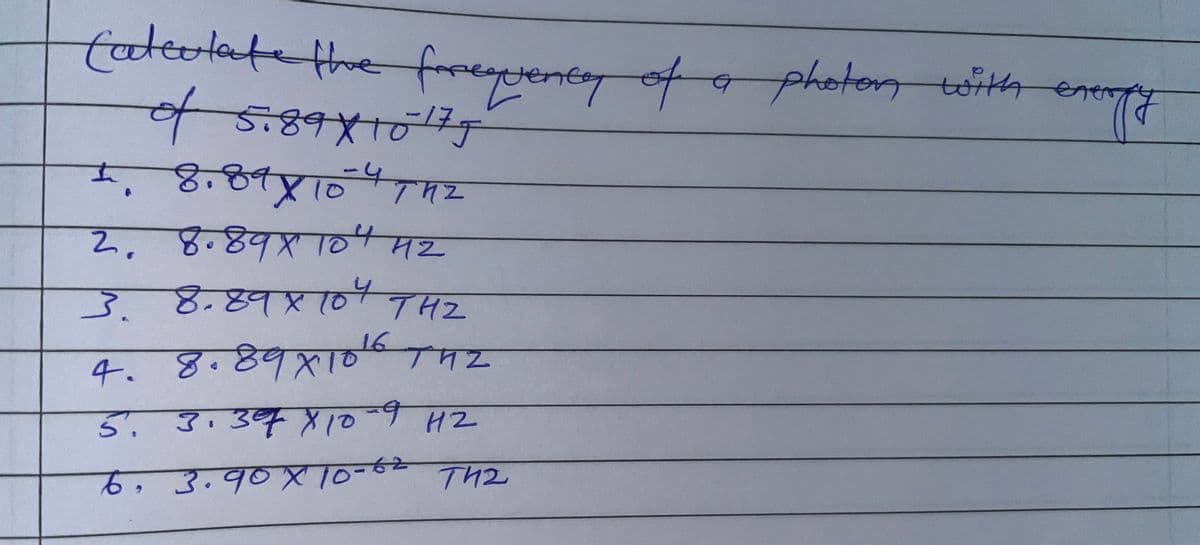 Calculate the frequency of a photon with energy
of 5.89X10⁻¹⁷J
1. 8.89X10⁻⁴ THZ
2. 8.89X10⁴ HZ
3. 8.89X10⁴ THZ
4. 8.89X10¹⁶ THZ
5. 3.37X10⁻⁹ HZ
6. 3.90X10⁻⁶² THZ